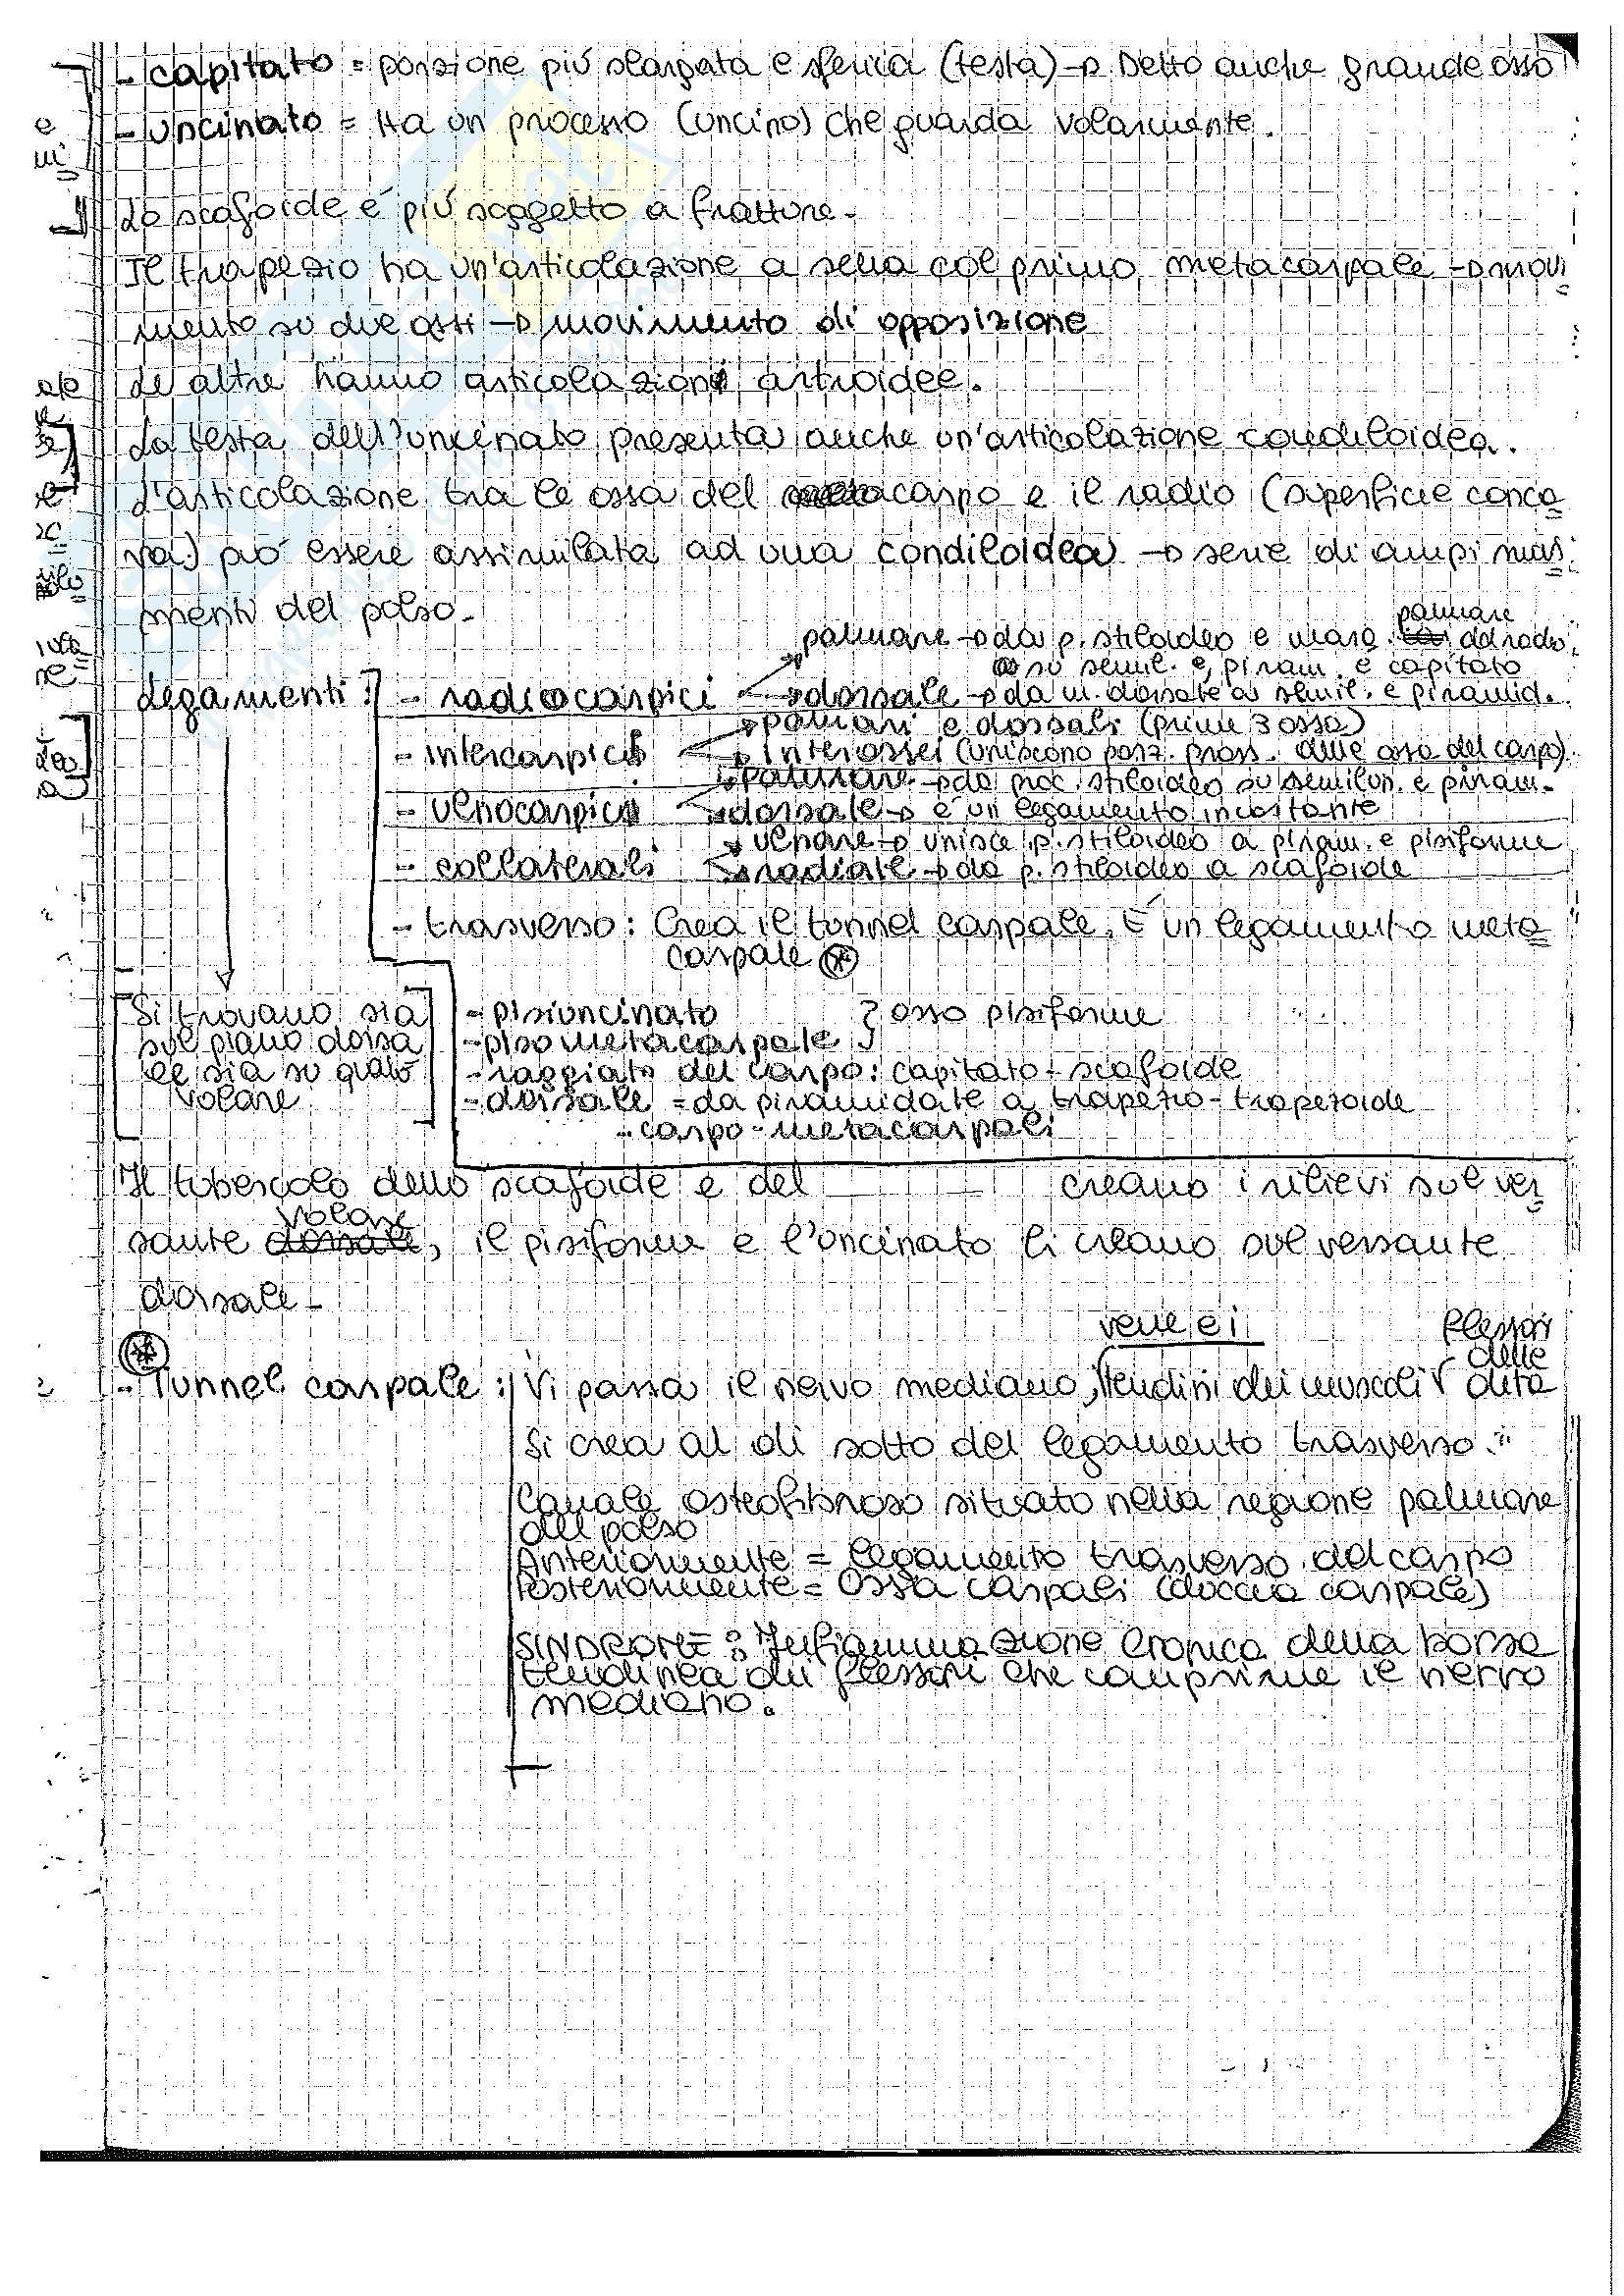 - capitato = porzione più slargata e sferica (testa) → Detto anche grande osso
- uncinato = Ha un processo (uncino) che guarda volarmente.
Lo scafoide é più soggetto a fratture.
Il trapezio ha un'articolazione a sella col primo metacarpale → movi
mento su due assi → movimento di opposizione
Le altre hanno articolazioni artroidee.
La testa dell'uncinato presenta anche un'articolazione condiloidea.
L'articolazione tra le ossa del carpo e il radio (superficie conca
va) può essere assimilata ad una condiloidea → serie di ampi
menti del polso.
palmare
palmare → da p. stiloideo e marg. del radio
su semil. e, piram. e capitato
Legamenti: - radiocarpici → dorsale → da m. dorsale a semil. e piramid.
palmari e dorsali (prime 3 ossa)
- intercarpici → Interossei (uniscono porz. pross. delle ossa del carpo).
palmare → da proc. stiloideo su semilun. e piram.
- ulnocarpici → dorsale → é un legamento incostante
ulnare → unisce p. stiloideo a piram. e pisiforme
- collaterali → radiale → da p. stiloideo a scafoide
- trasverso: Crea il tunnel carpale. É un legamento meta
carpale (*)
Si trovano sia - pisiuncinato } osso pisiforme
sul piano dorsa - pisometacarpale }
le sia su quello - raggiato del carpo: capitato - scafoide
volare - dorsale = da piramidale a trapezio - trapezoide
- carpo - metacarpali
Il tubercolo dello scafoide e del ______ creano i rilievi sul ver
volare
sante dorsale, il pisiforme e l'uncinato li creano sul versante
dorsale.
vene e i flessori
(*) delle
- Tunnel carpale: Vi passa il nervo mediano, tendini dei muscoli dita
Si crea al di sotto del legamento trasverso.
Canale osteofibroso situato nella regione palmare
del polso
Anteriormente = legamento trasverso del carpo
Posteriormente = Ossa carpali (doccia carpale)
SINDROME: Infiammazione cronica della borsa
tendinea dei flessori che comprime il nervo
mediano.